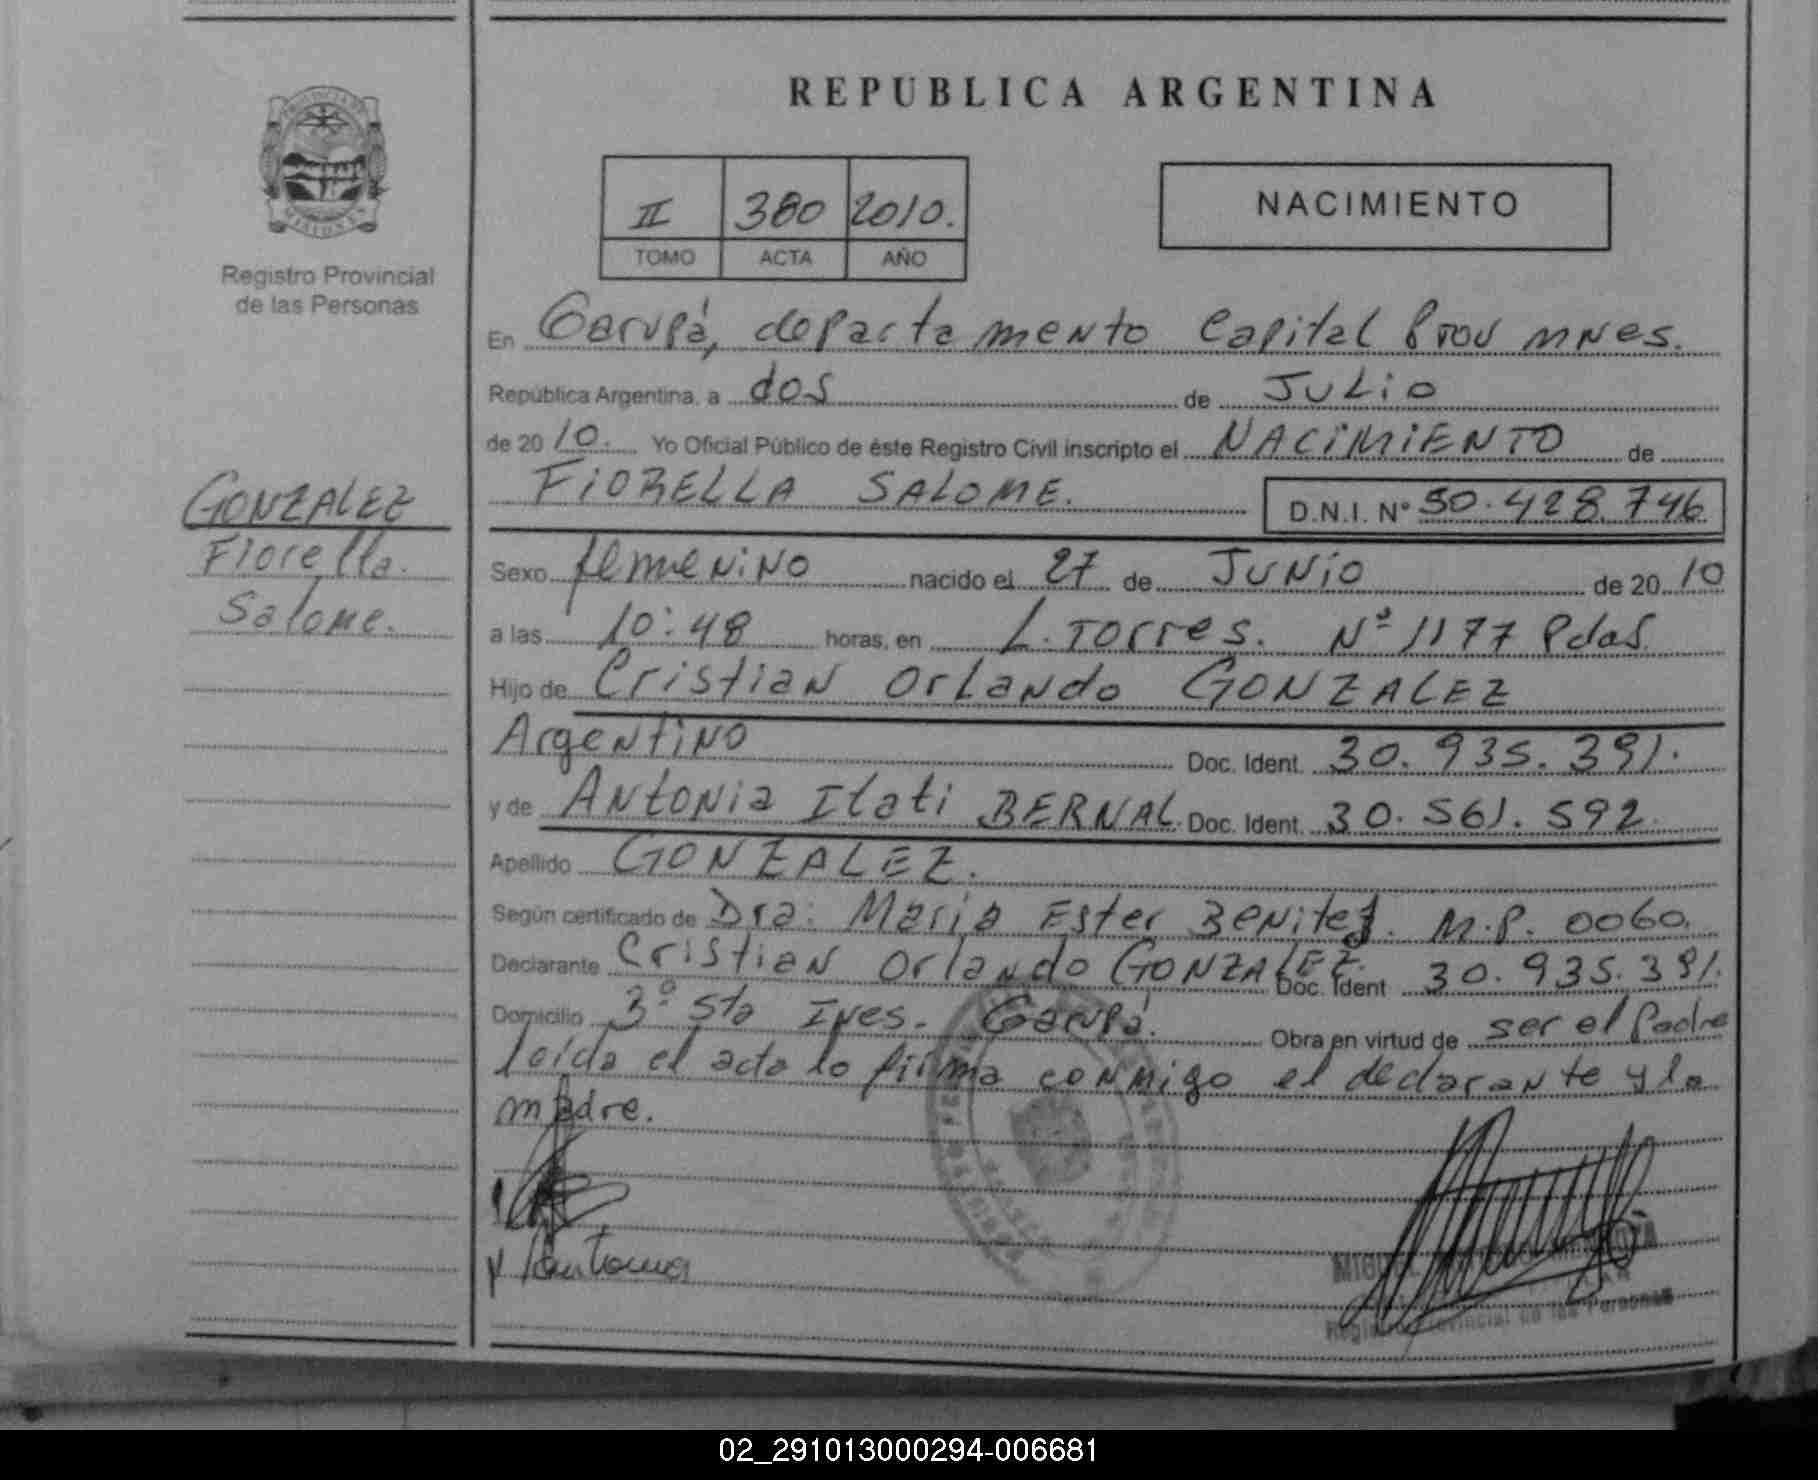 REPUBLICA ARGENTINA
NACIMIENTO
II 380 2010.
TOMO ACTA AÑO
Registro Provincial
de las Personas
GONZALEZ
Fiorella.
Salome.
En Garupá, departamento Capital Prov mnes.
República Argentina, a dos de JULIO
de 2010. Yo Oficial Público de éste Registro Civil inscripto el NACIMIENTO de
FIORELLA SALOME. D.N.I. Nº 50.428.746
Sexo femenino nacido el 27 de JUNIO de 2010
a las 10:48 horas, en L. Torres. Nº 1177 Pdas.
Hijo de Cristian Orlando GONZALEZ
Argentino Doc. Ident. 30.935.391.
y de Antonia Itati BERNAL. Doc. Ident. 30.561.592.
Apellido GONZALEZ.
Según certificado de Dra: Maria Ester Benitez. M.P. 0060.
Declarante Cristian Orlando GONZALEZ. Doc. Ident 30.935.391.
Domicilio 3º Sta Ines. Garupá. Obra en virtud de ser el Padre
leída el acta lo firma conmigo el declarante y la
madre.
Antonia
Registro Provincial de las Personas
02_291013000294-006681